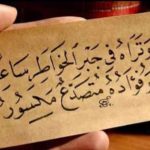 وتراه في جبر الخواطر ساعيا
وفؤاده متصدع مكسور